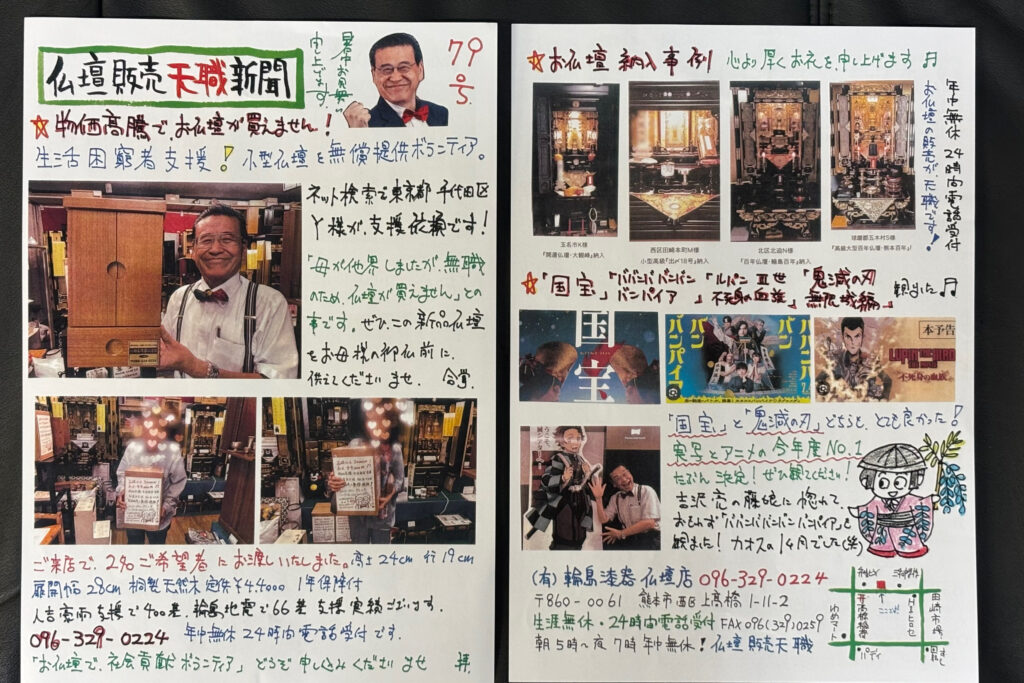 仏壇販売天職新聞
暑中お見舞
申し上げます。
79号
☆物価高騰で、お仏壇が買えません!
生活困窮者支援!小型仏壇を無償提供ボランティア。
ネット検索で東京都千代田区
Y様が、支援依頼です!
「母が他界しましたが、無職
のため、仏壇が買えません」との
事です。ぜひ、この新品仏壇
をお母様の御仏前に、
供えてくださいませ。合掌.
ご来店で、2名ご希望者にお渡しいたしました。高さ24cm 行19cm
扉開幅28cm 桐製天然木 定価¥44000 1年保障付
人吉豪雨支援で400基、輪島地震で66基 支援実績ございます。
096-329-0224 年中無休24時間電話受付です。
「お仏壇で、社会貢献ボランティア」どうぞ申し込みくださいませ
☆お仏壇納入事例 心より厚くお礼を申し上げます♫
年中無休 24時間電話受付
お仏壇の販売が、天職です!
玉名市K様
「開運仏壇・大観峰」納入
西区田崎本町M様
小型高級「出ハ18号」納入
北区北迫N様
「百年仏壇・輪島百年」納入
球磨郡五木村S様
「高級大型百年仏壇・熊本百年」
☆「国宝」「ババンババンバンバンパイア」「ルパン三世 不死身の血族」「鬼滅の刃 無限城編」観ました♫
国宝
バンババン
バンパイア
本予告
LUPIN THE IIIRD
不死身の血族
「国宝」と「鬼滅の刃」どちらも、とても良かった!
実写とアニメの今年度NO.1
たぶん決定!ぜひ観てください!
吉沢亮の藤娘に惚れて、
おもわず「ババンババンバンバンパイア」も
観ました!カオスの1ヶ月でした(笑)
(有)輪島漆器仏壇店 096-329-0224
〒860-0061 熊本市西区上高橋1-11-2
生涯無休・24時間電話受付 FAX096(329)0259
朝5時~夜7時 年中無休!仏壇販売天職
ここだ!
田崎市場
ゆめマート
高橋稲荷